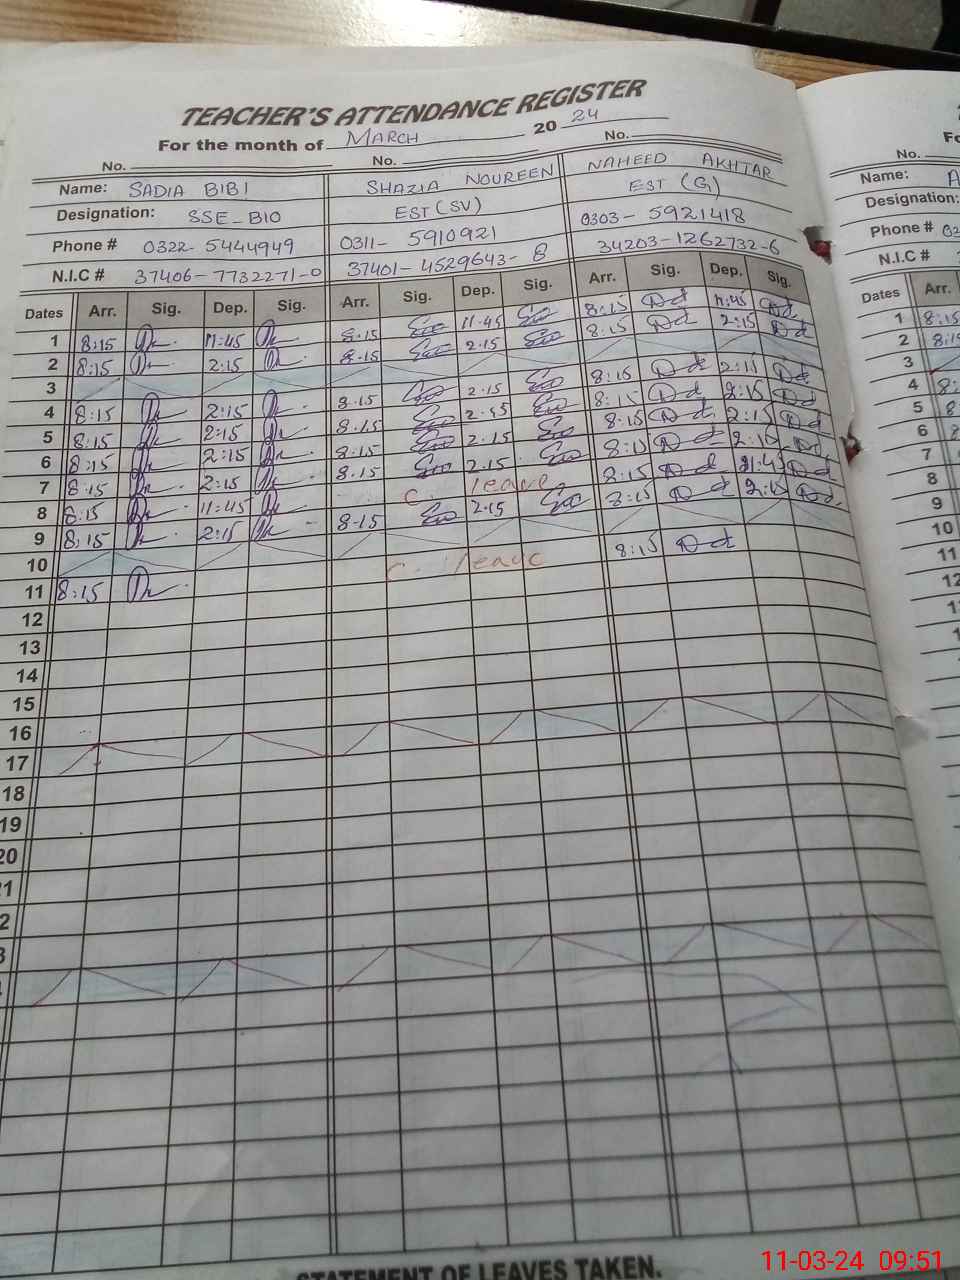 TEACHER'S ATTENDANCE REGISTER
For the month of MARCH 2024
No. No. No.
Name: SADIA BIBI SHAZIA NOUREEN NAHEED AKHTAR
Designation: SSE-BIO EST (SV) EST (G)
Phone # 0322-5444949 0311-5910921 0303-5921418
N.I.C # 37406-7732271-0 37401-4529643-8 34203-1262732-6
Dates Arr. Sig. Dep. Sig. Arr. Sig. Dep. Sig. Arr. Sig. Dep. Sig.
1 8:15 11:45 8.15 11.45 8:15 11:45
2 8:15 2:15 8.15 2.15 8:15 2:15
3
4 8:15 2:15 8.15 2.15 8:15 2:15
5 8:15 2:15 8.15 8:15 2:15
6 8:15 2:15 8.15 2.15 8:15 2:15
7 8:15 2:15 8.15 2.15 2:15
8 8:15 11:45 C. leave 8:15
9 8:15 2:15 8.15 2.15 8:15 2:15
10
11 8:15 C. leave 8:15
12
13
14
15
16
17
18
19
20
STATEMENT OF LEAVES TAKEN.
No.
Name: A
Designation:
Phone #
N.I.C #
Dates Arr.
1 8:15
2
3
4
5
6
7
8
9
10
11
12
11-03-24 09:51